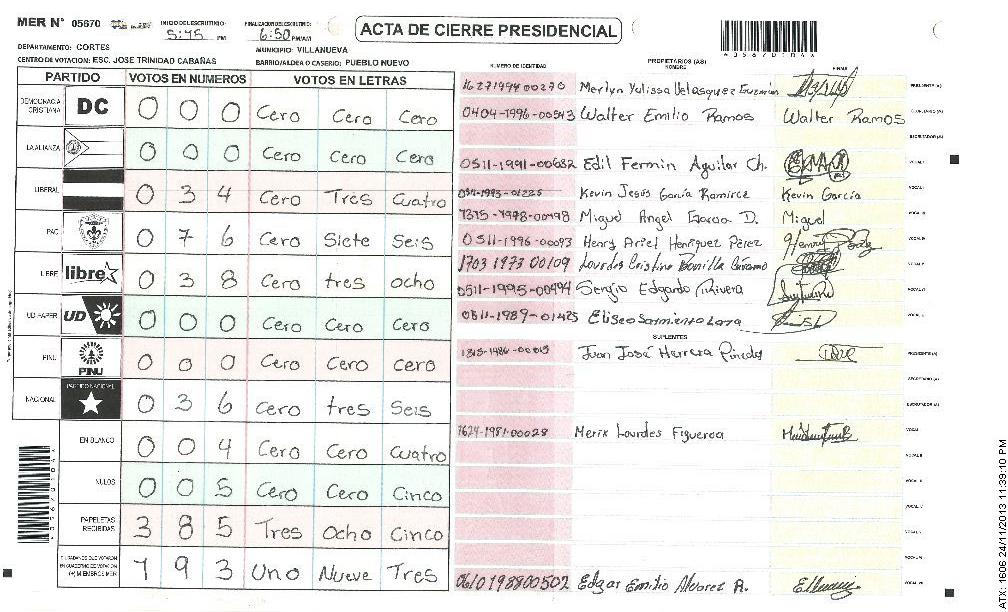 MER N° 05670
INICIO DE ESCRUTINIO: 5:45 PM
FINALIZACION DE ESCRUTINIO: 6:50 PM/AM
ACTA DE CIERRE PRESIDENCIAL
DEPARTAMENTO: CORTES
MUNICIPIO: VILLANUEVA
CENTRO DE VOTACION: ESC. JOSE TRINIDAD CABAÑAS
BARRIO/ALDEA O CASERIO: PUEBLO NUEVO
PARTIDO VOTOS EN NUMEROS VOTOS EN LETRAS
DEMOCRACIA CRISTIANA DC 0 0 0 Cero Cero Cero
LA ALIANZA 0 0 0 Cero Cero Cero
LIBERAL 0 3 4 Cero Tres Cuatro
PAC 0 7 6 Cero Siete Seis
LIBRE libre 0 3 8 Cero tres ocho
UD FAPER UD 0 0 0 Cero Cero Cero
PINU PINU 0 0 0 Cero Cero Cero
NACIONAL PARTIDO NACIONAL 0 3 6 Cero tres Seis
EN BLANCO 0 0 4 Cero Cero Cuatro
NULOS 0 0 5 Cero Cero Cinco
PAPELETAS RECIBIDAS 3 8 5 Tres Ocho Cinco
CIUDADANOS QUE VOTARON EN CUADERNO DE VOTACION (+) MIEMBROS MER 1 9 3 Uno Nueve Tres
NUMERO DE IDENTIDAD PROPIETARIOS (AS) NOMBRE FIRMA
1627199400270 Merlyn Yulissa Velasquez Guzman PRESIDENTE (A)
0404-1996-00543 Walter Emilio Ramos Walter Ramos SECRETARIO (A)
ESCRUTADOR (A)
0511-1991-00682 Edil Fermin Aguilar Ch. VOCAL I
Kevin Jesús García Ramirez Kevin García
Miguel Angel Garcia D. Miguel
0511-1996-00093 Henry Ariel Henriquez Pérez
1703 1973 00109 Lourdes Cristina Bonilla
0511-1995-00494 Sergio Edgardo
0511-1989-01425 Eliseo Sarmiento Lara
SUPLENTES
Juan José Herrera Pineda PRESIDENTE (A)
SECRETARIO (A)
ESCRUTADOR (A)
1624-1981-00028 Merix Lourdes Figueroa VOCAL I
VOCAL II
0610198800502 Edgar Emilio Alvarez R.
ATX-1606 24/11/2013 11:39:10 PM